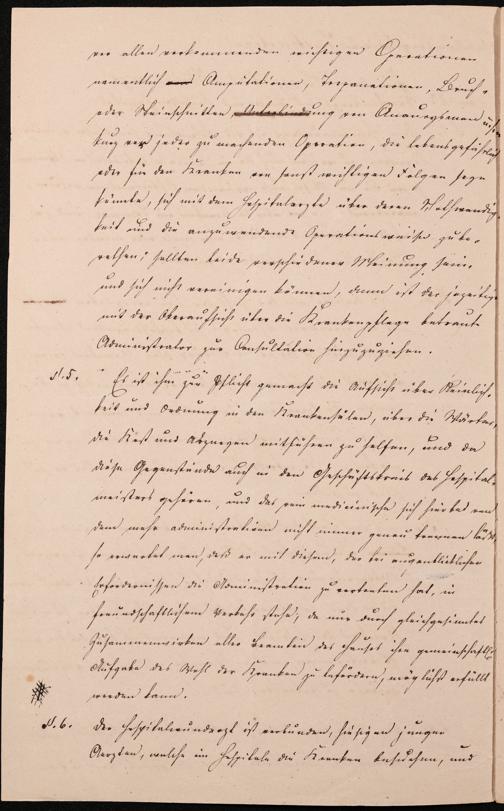 vor allen vorkommenden wichtigen Operationen
namentlich Amputationen, Trepanationen, Bruch-
oder Steinschnitten, Unterbindung von Aneurysmen u.
kurz vor jeder zu machenden Operation, die lebensgefährlich
oder für den Kranken von sonst wichtigen Folgen seyn
könnte, sich mit dem Hospitalarzte über deren Nothwendig-
keit und die anzuwendende Operationsweise zu be-
rathen; sollten beide verschiedener Meinung sein,
und sich nicht vereinigen können, dann ist der jezeitige
mit der Oberaufsicht über die Krankenpflege betraute
Administrator zur Consultation hinzuzuziehen.
§. 5. Es ist ihm zur Pflicht gemacht die Aufsicht über Reinlich-
keit und Ordnung in den Krankensälen, über die Wärter,
die Kost und Arzneyen mitführen zu helfen, und da
diese Gegenstände auch in den Geschäftskreis des Hospital-
meisters gehören, und das rein medicinische sich hierbei von
dem mehr administrativen nicht immer genau trennen läßt,
so erwartet man, daß er mit diesem, der bei augenblicklichen
Erfordernissen die Administration zu vertreten hat, in
freundschaftlichem Verkehr stehe, da nur durch gleichgesinntes
Zusammenwirken aller Beamten des Hauses ihre gemeinschaftl.
Aufgabe das Wohl der Kranken zu befördern, möglichst erfüllt
werden kann.
§. 6. Der Hospitalwundarzt ist verbunden, hiesigen jungen
Aerzten, welche im Hospitale die Kranken besuchen, und